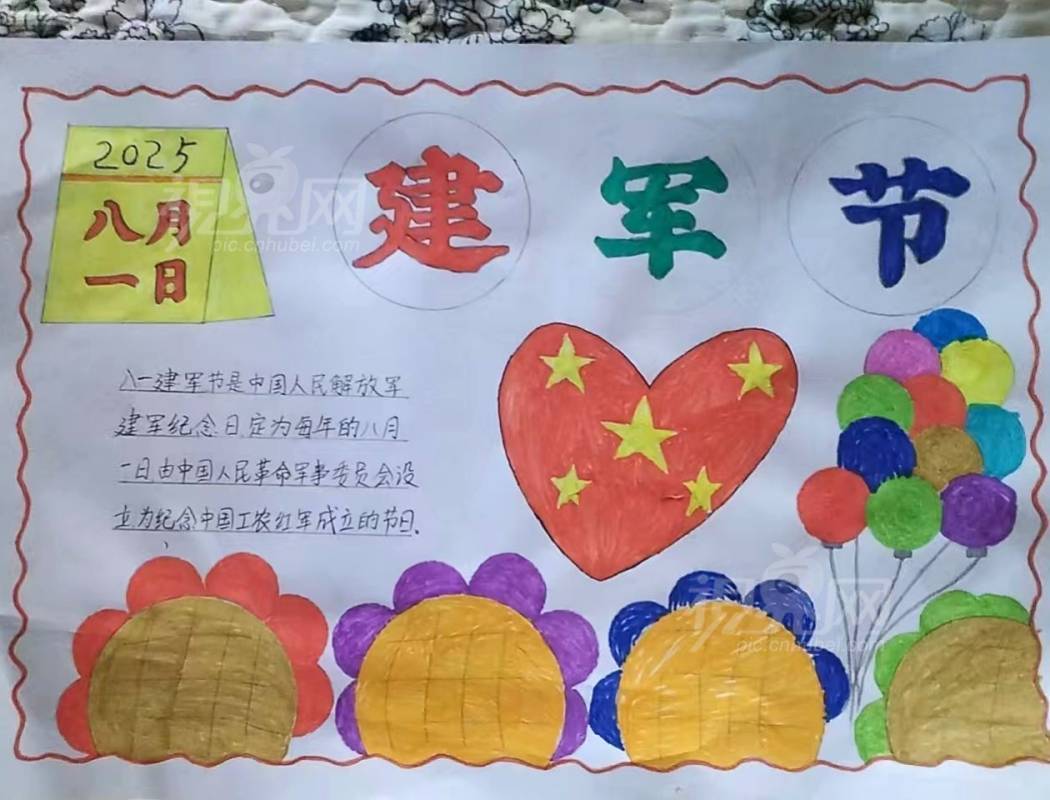 2025
八月
一日
建军节
八一建军节是中国人民解放军
建军纪念日,定为每年的八月
一日由中国人民革命军事委员会设
立为纪念中国工农红军成立的节日.
视界网
pic.cnhubei.com
视界网
pic.cnhubei.com